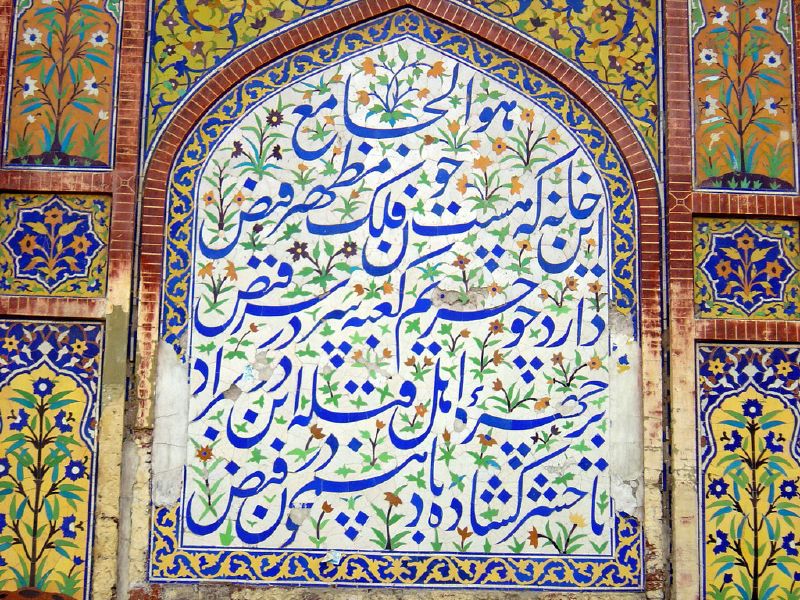 هو الجامع
این خانه که هست چون فلک مظهر فیض
دارد چو حریم کعبه در فیض
بر چهرهٔ اهل قبله این در مراد
تا حشر گشاده باد در فیض